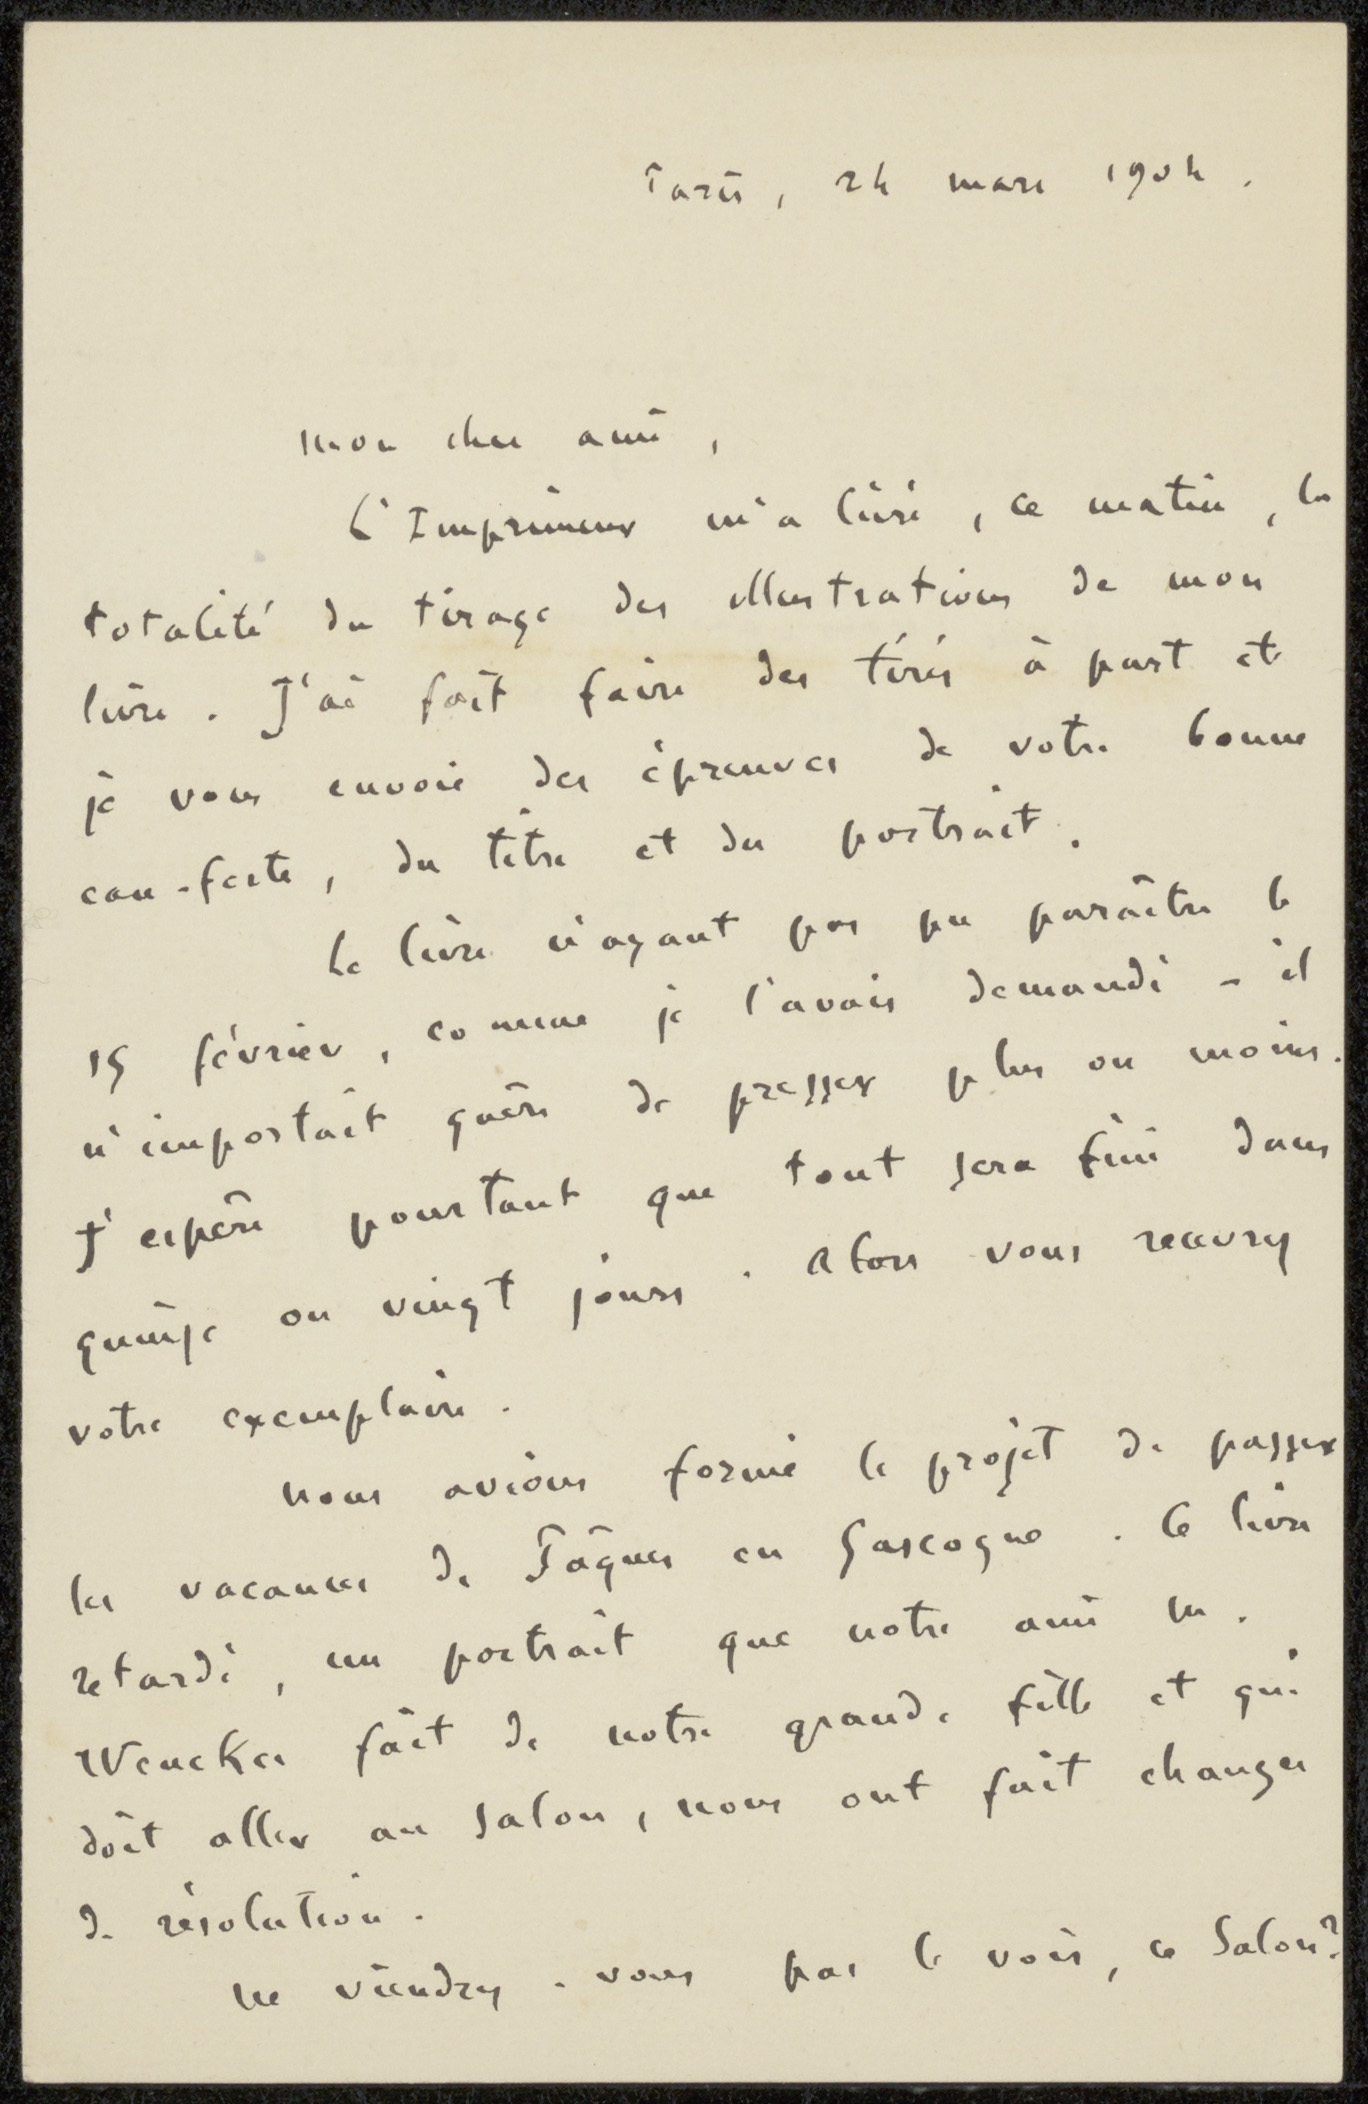 Paris, 24 mars 1904.
Mon cher ami,
L'Imprimeur m'a livré, ce matin, la
totalité du tirage des illustrations de mon
livre. J'ai fait faire des tirés à part et
je vous envoie des épreuves de votre bonne
eau-forte, du titre et du portrait.
Le livre n'ayant pas pu paraître le
15 février, comme je l'avais demandé - il
n'importait guère de presser plus ou moins.
J'espère pourtant que tout sera fini dans
quinze ou vingt jours. Alors vous recevrez
votre exemplaire.
Nous avions formé le projet de passer
les vacances de Pâques en Gascogne. Ce livre
retardé, un portrait que notre ami M.
Wencker fait de notre grande fille et qui
doit aller au Salon, nous ont fait changer
de résolution.
Ne viendrez-vous pas le voir, ce Salon?